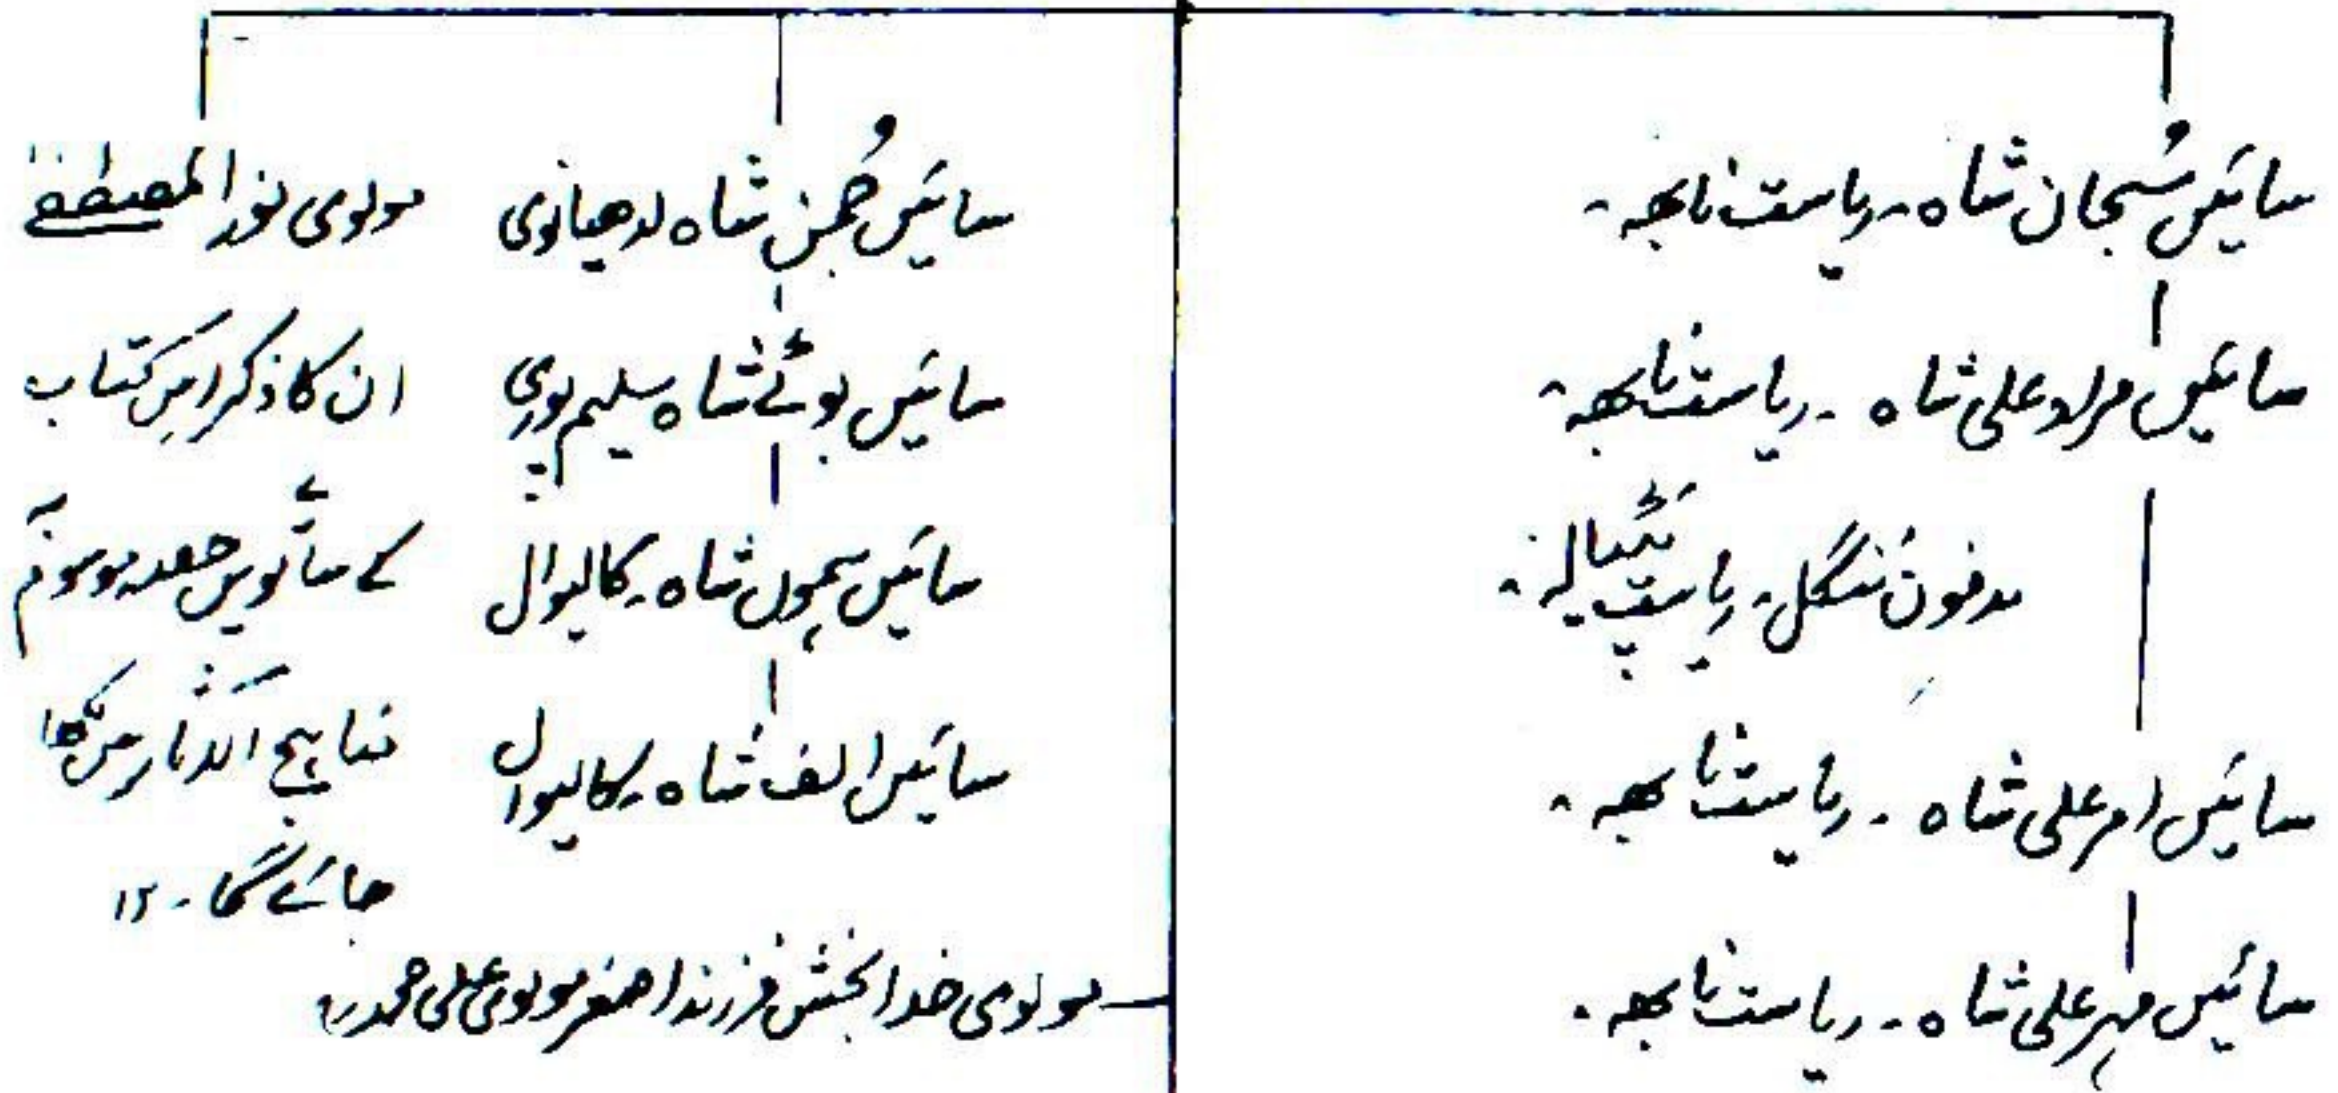 سائیں سُبحان شاہ۔ ریاست نابھہ۔
سائیں مراد علی شاہ ۔ ریاست نابھہ۔
مدفون ننگل۔ ریاست پٹیالہ۔
سائیں امر علی شاہ ۔ ریاست نابھہ۔
سائیں مہر علی شاہ ۔ ریاست نابھہ۔
سائیں جُمن شاہ لدھیانوی
سائیں بوٹے شاہ سلیم پوری
سائیں شاہ۔ کالیوال
سائیں الف شاہ۔ کالیوال
مولوی نور المصطفےٰ
ان کا ذکر اس کتاب
کے ساتویں حصہ موسوم بہ
نتایج الآثار میں لکھا
جائے گا ۔ ۱۲
مولوی خدا بخش فرزند اصغر مولوی علی محمد رح